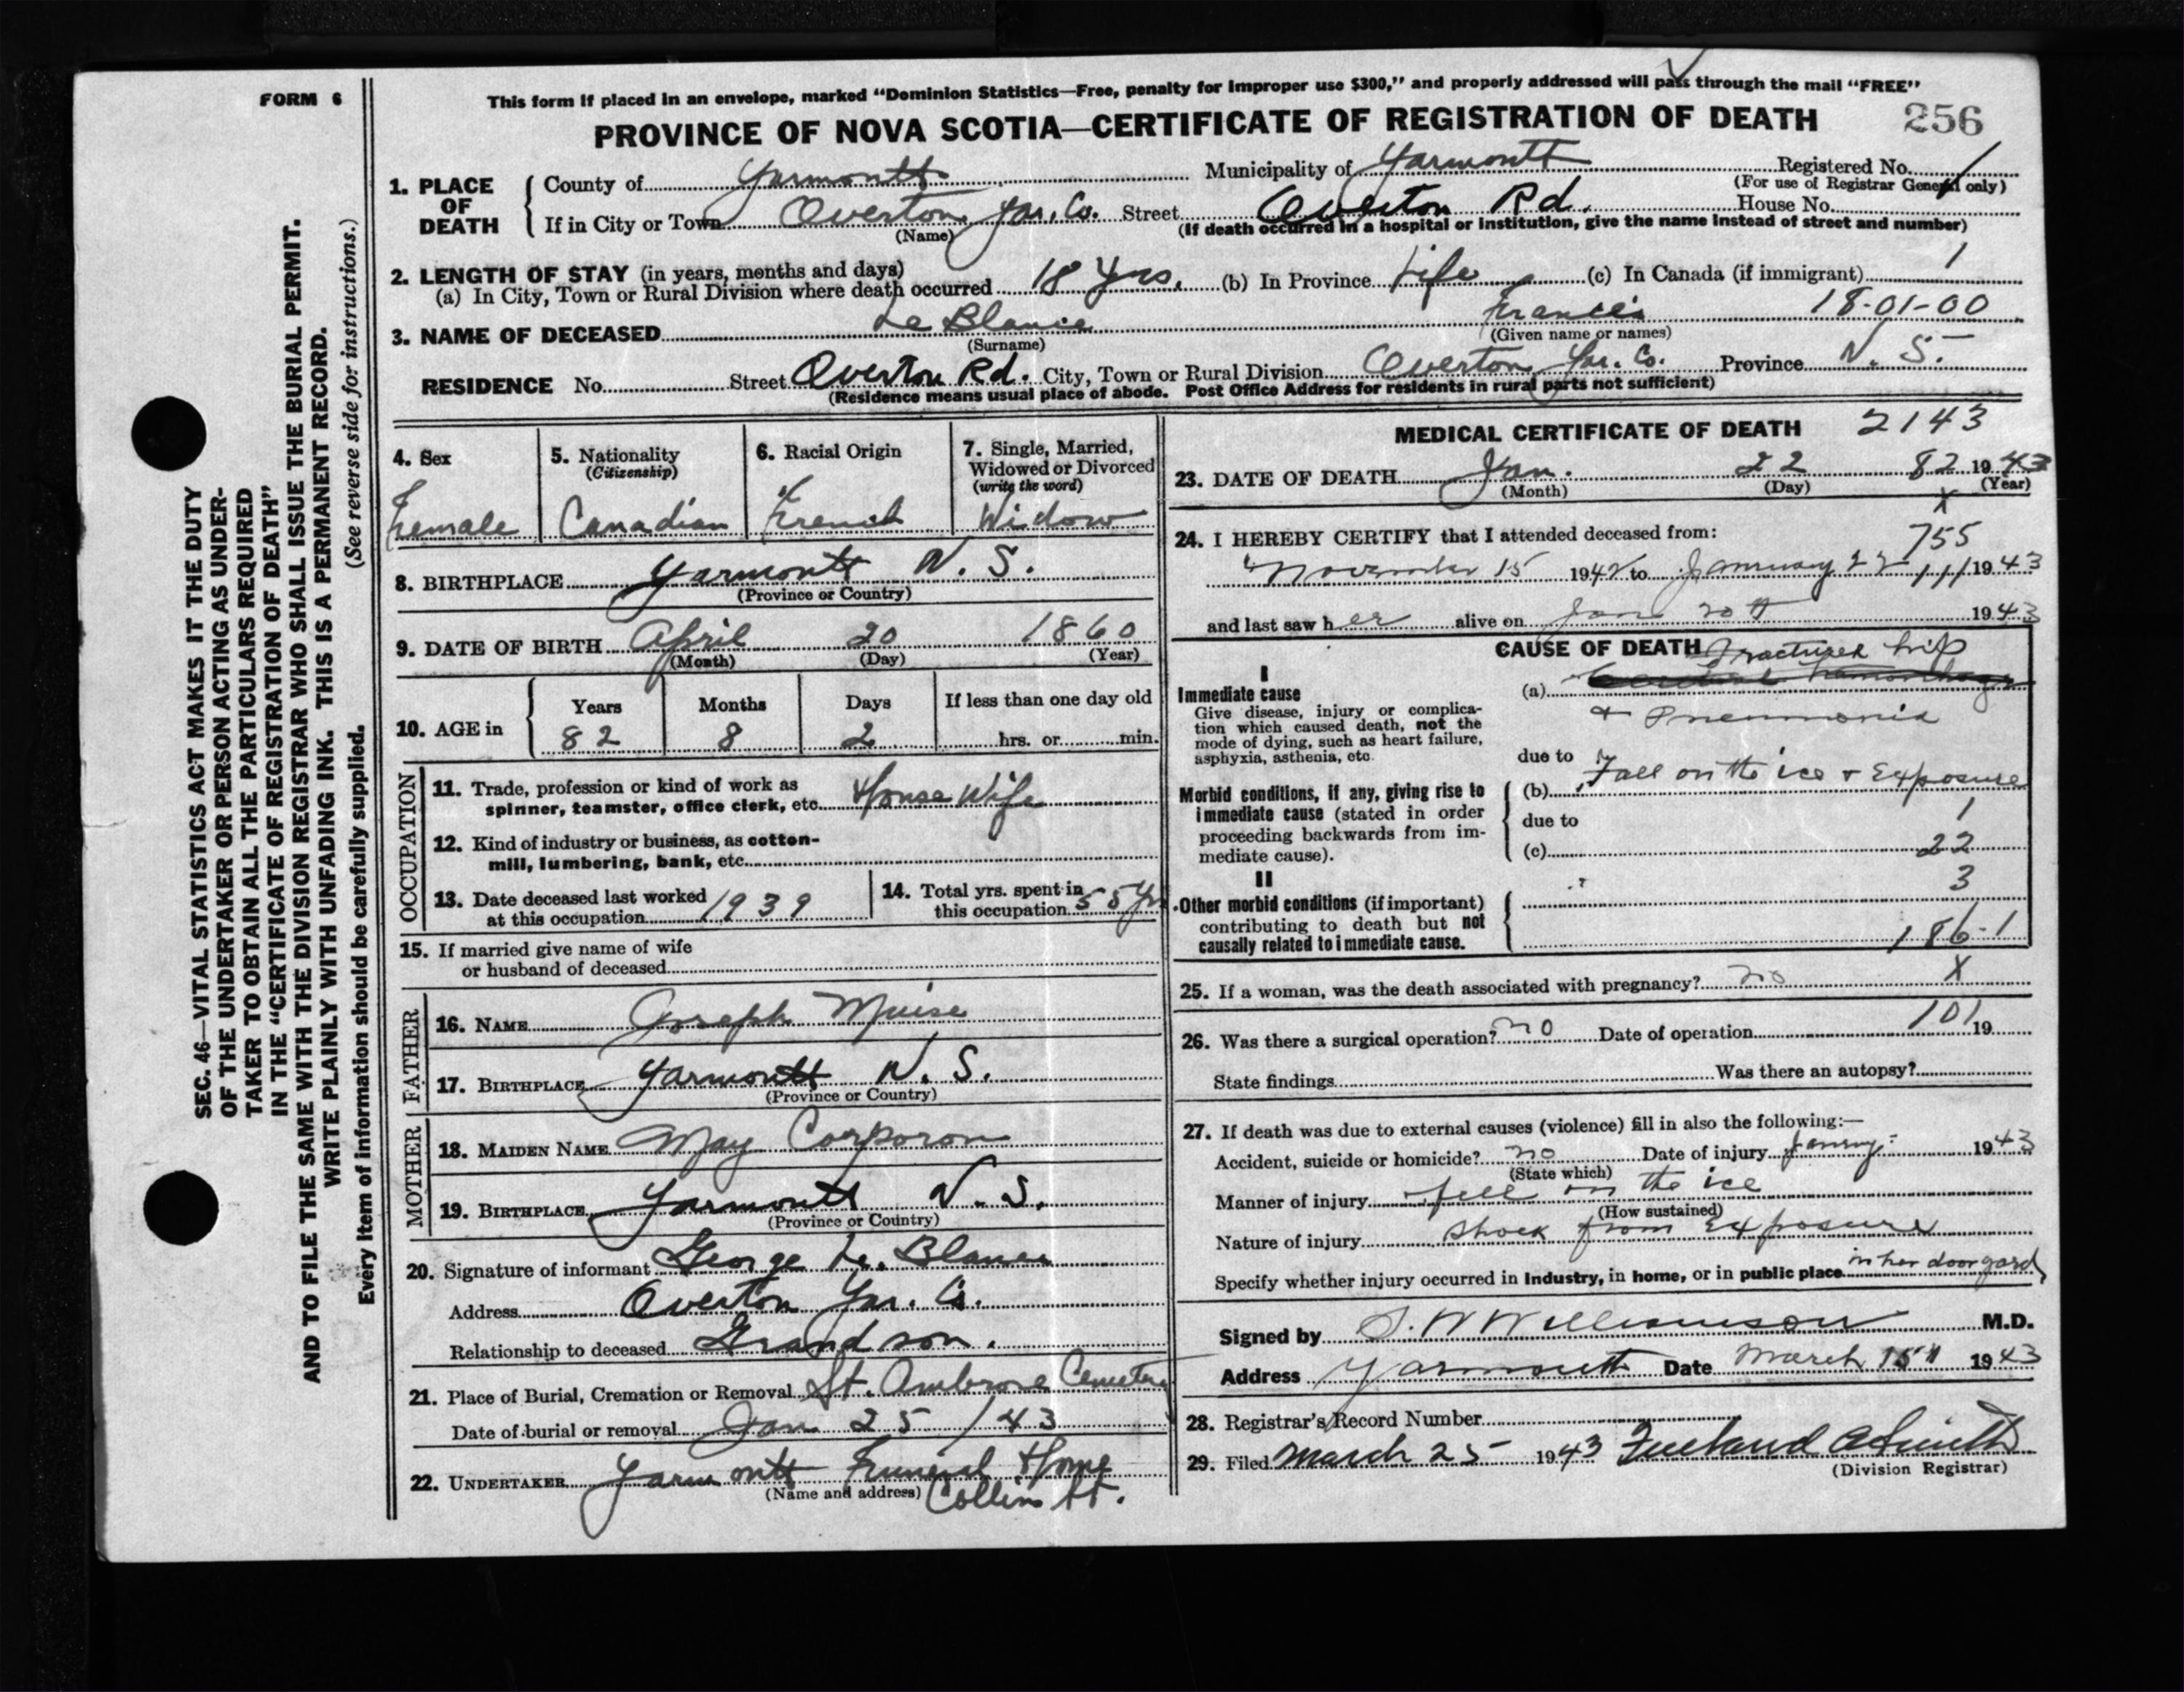 FORM 6
This form if placed in an envelope, marked "Dominion Statistics—Free, penalty for improper use $300," and properly addressed will pass through the mail "FREE"
PROVINCE OF NOVA SCOTIA—CERTIFICATE OF REGISTRATION OF DEATH 256
SEC. 46—VITAL STATISTICS ACT MAKES IT THE DUTY
OF THE UNDERTAKER OR PERSON ACTING AS UNDER-
TAKER TO OBTAIN ALL THE PARTICULARS REQUIRED
IN THE "CERTIFICATE OF REGISTRATION OF DEATH"
AND TO FILE THE SAME WITH THE DIVISION REGISTRAR WHO SHALL ISSUE THE BURIAL PERMIT.
WRITE PLAINLY WITH UNFADING INK. THIS IS A PERMANENT RECORD.
(See reverse side for instructions.)
Every item of information should be carefully supplied.
1. PLACE OF DEATH
County of Yarmouth Municipality of Yarmouth Registered No.
(For use of Registrar General only)
If in City or Town Overton Yar. Co. Street Overton Rd. House No.
(Name) (If death occurred in a hospital or institution, give the name instead of street and number)
2. LENGTH OF STAY (in years, months and days)
(a) In City, Town or Rural Division where death occurred 18 yrs. (b) In Province Life (c) In Canada (if immigrant) 1
3. NAME OF DECEASED Le Blanc Francis 18-01-00
(Surname) (Given name or names)
RESIDENCE No. Street Overton Rd. City, Town or Rural Division Overton Yar. Co. Province N. S.
(Residence means usual place of abode. Post Office Address for residents in rural parts not sufficient)
4. Sex Female
5. Nationality (Citizenship) Canadian
6. Racial Origin French
7. Single, Married, Widowed or Divorced (write the word) Widow
8. BIRTHPLACE Yarmouth N. S.
(Province or Country)
9. DATE OF BIRTH April 20 1860
(Month) (Day) (Year)
10. AGE in Years Months Days If less than one day old
82 8 2 hrs. or min.
OCCUPATION
11. Trade, profession or kind of work as
spinner, teamster, office clerk, etc. House Wife
12. Kind of industry or business, as cotton-
mill, lumbering, bank, etc.
13. Date deceased last worked at this occupation 1939
14. Total yrs. spent in this occupation 58 yrs
15. If married give name of wife
or husband of deceased
FATHER
16. NAME Joseph Muise
17. BIRTHPLACE Yarmouth N. S.
(Province or Country)
MOTHER
18. MAIDEN NAME May Corporon
19. BIRTHPLACE Yarmouth N. S.
(Province or Country)
20. Signature of informant George Le. Blanc
Address Overton Yar. Co.
Relationship to deceased Grandson.
21. Place of Burial, Cremation or Removal St. Ambrose Cemetery
Date of burial or removal Jan 25 / 43
22. UNDERTAKER Yarmouth Funeral Home
(Name and address) Collins St.
MEDICAL CERTIFICATE OF DEATH 2143
23. DATE OF DEATH Jan. 22 82 1943
(Month) (Day) (Year)
x
24. I HEREBY CERTIFY that I attended deceased from: 755
November 15 1942 to January 22 111 1943
and last saw her alive on Jan 20th 1943
CAUSE OF DEATH Fractured hip
I
Immediate cause
Give disease, injury or complica-
tion which caused death, not the
mode of dying, such as heart failure,
asphyxia, asthenia, etc.
(a) Cerebral Hemorrhage
+ Pneumonia
due to
Morbid conditions, if any, giving rise to
immediate cause (stated in order
proceeding backwards from im-
mediate cause).
(b) Fall on the ice + Exposure
due to 1
(c) 22
II 3
Other morbid conditions (if important)
contributing to death but not
causally related to immediate cause.
186-1
25. If a woman, was the death associated with pregnancy? no X
26. Was there a surgical operation? no Date of operation 101 19
State findings Was there an autopsy?
27. If death was due to external causes (violence) fill in also the following:—
Accident, suicide or homicide? no Date of injury 1943
(State which)
Manner of injury fell on the ice
(How sustained)
Nature of injury shock from Exposure
Specify whether injury occurred in industry, in home, or in public place in her door yard
Signed by S. W Williamson M.D.
Address Yarmouth Date March 15th 1943
28. Registrar's Record Number
29. Filed March 25 1943
(Division Registrar)